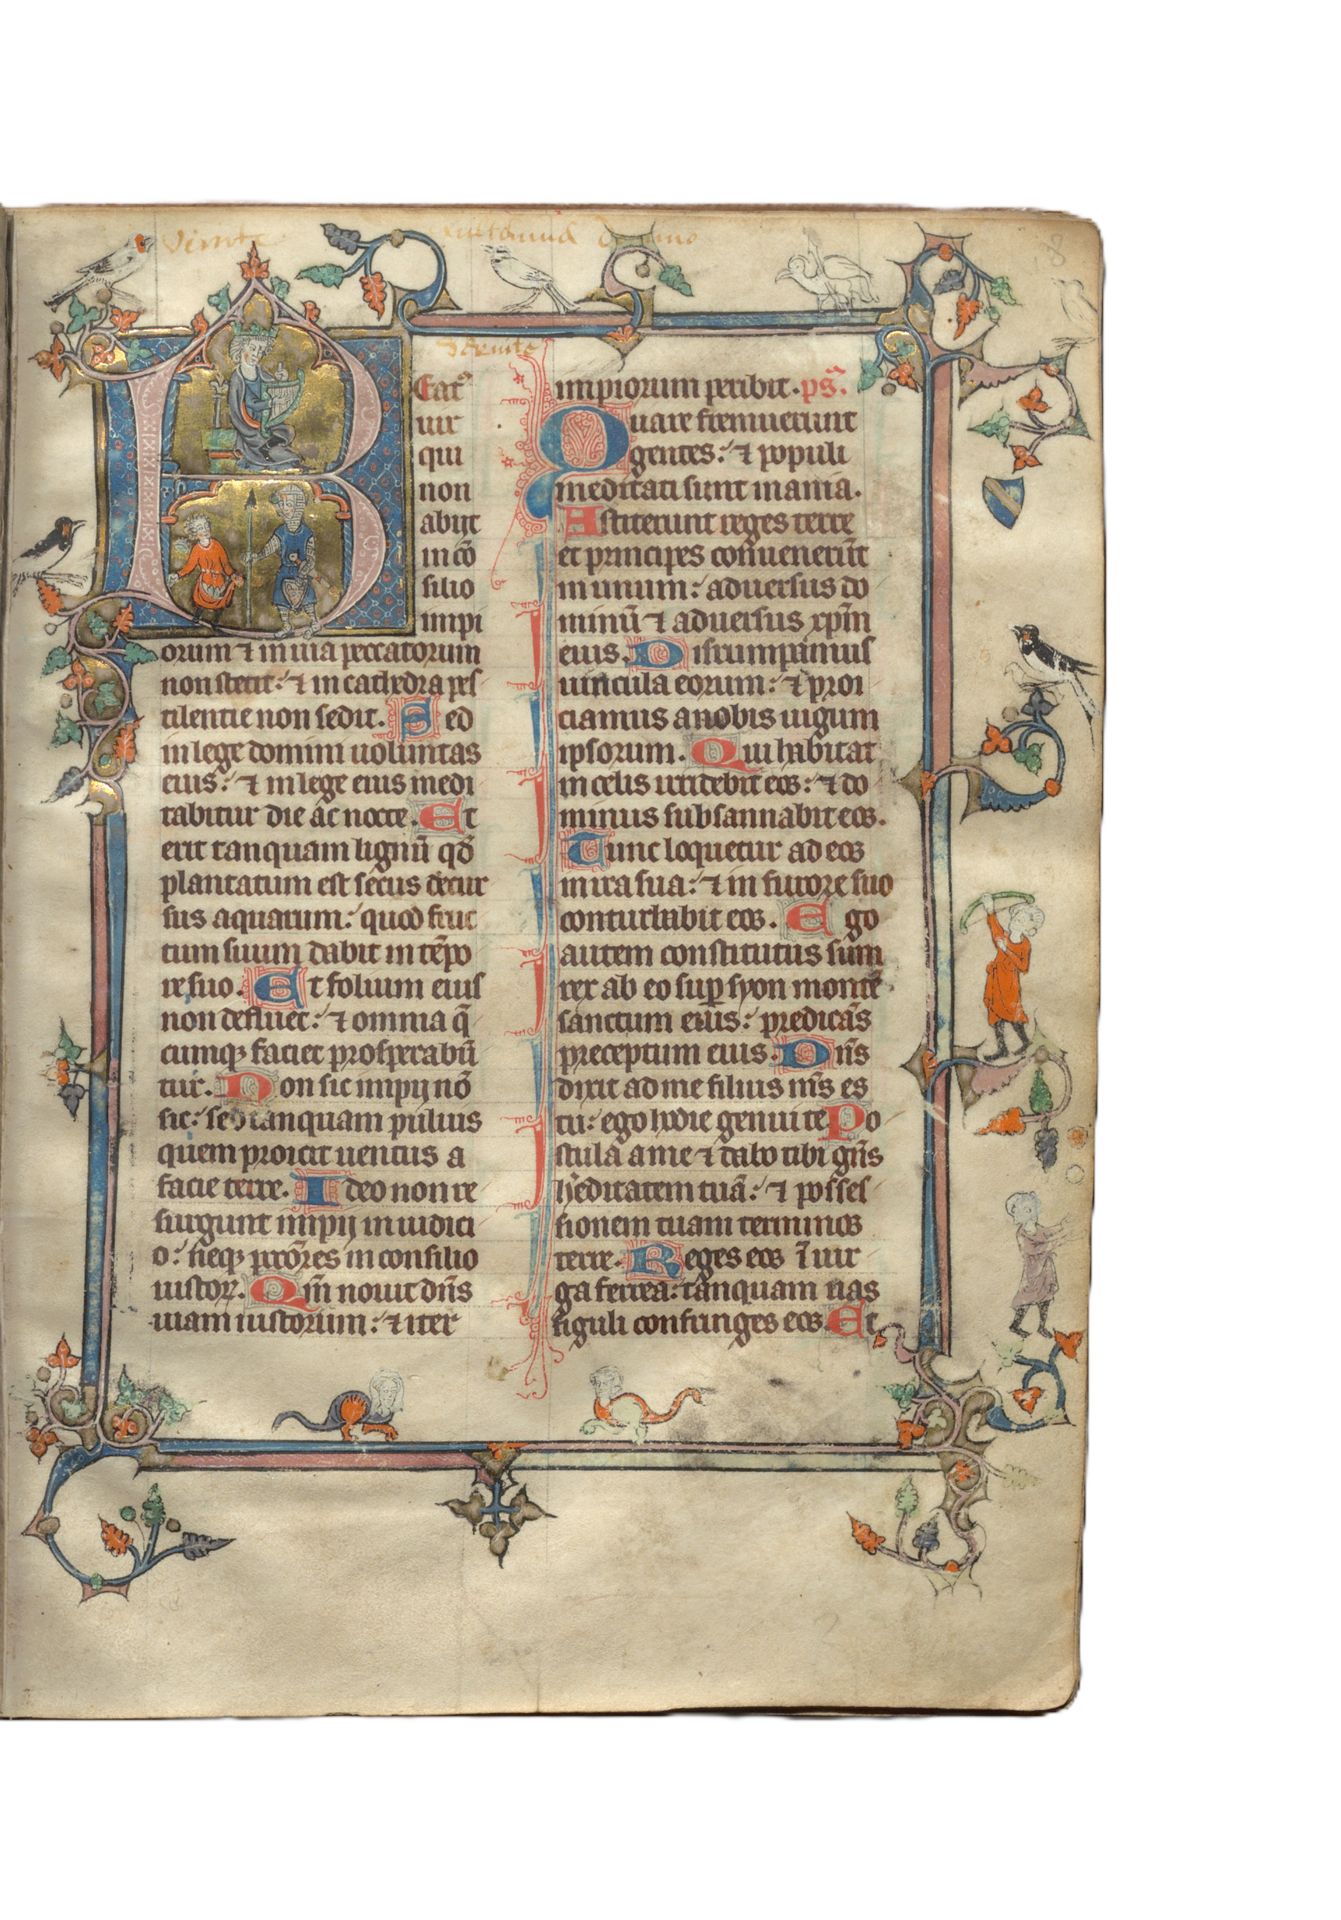 Venite exultemus domino
8
Seruite
Eatꝰ
uir
qui
non
abijt
in cō
silio
impi
orum ⁊ in uia peccatorum
non stetit: ⁊ in cathedra pes
tilentie non sedit. Sed
in lege domini uoluntas
eius: ⁊ in lege eius medi
tabitur die ac nocte. Et
erit tanquam lignū qd̄
plantatum est secus decur
sus aquarum: quod fruc
tum suum dabit in tēpo
re suo. Et folium eius
non defluet: ⁊ omnia q̄
cumqꝫ faciet prosperabū
tur. Non sic impij nō
sic: sed tanquam puluis
quem proicit uentus a
facie terre. Ideo non re
surgunt impij in iudici
o: neqꝫ pctōres in consilio
iustoꝝ. Qm̄ nouit dn̄s
uiam iustorum: ⁊ iter
impiorum peribit. ps̄.
Quare fremuerunt
gentes: ⁊ populi
meditati sunt inania.
Astiterunt reges terre
et principes conuenerūt
in unum: aduersus do
minū ⁊ aduersus xpm̄
eius. Dirumpamus
uincula eorum: ⁊ proi
ciamus a nobis iugum
ipsorum. Qui habitat
in celis irridebit eos: ⁊ do
minus subsannabit eos.
Tunc loquetur ad eos
in ira sua: ⁊ in furore suo
conturbabit eos. Ego
autem constitutus sum
rex ab eo sup̄ syon montē
sanctum eius: predicās
preceptum eius. Dn̄s
dixit ad me filius m̄s es
tu: ego hodie genui te Po
stula a me ⁊ dabo tibi gn̄s
h̄editatem tuā: ⁊ posses
sionem tuam terminos
terre. Reges eos ī uir
ga ferrea: tanquam uas
figuli confringes eos. Et